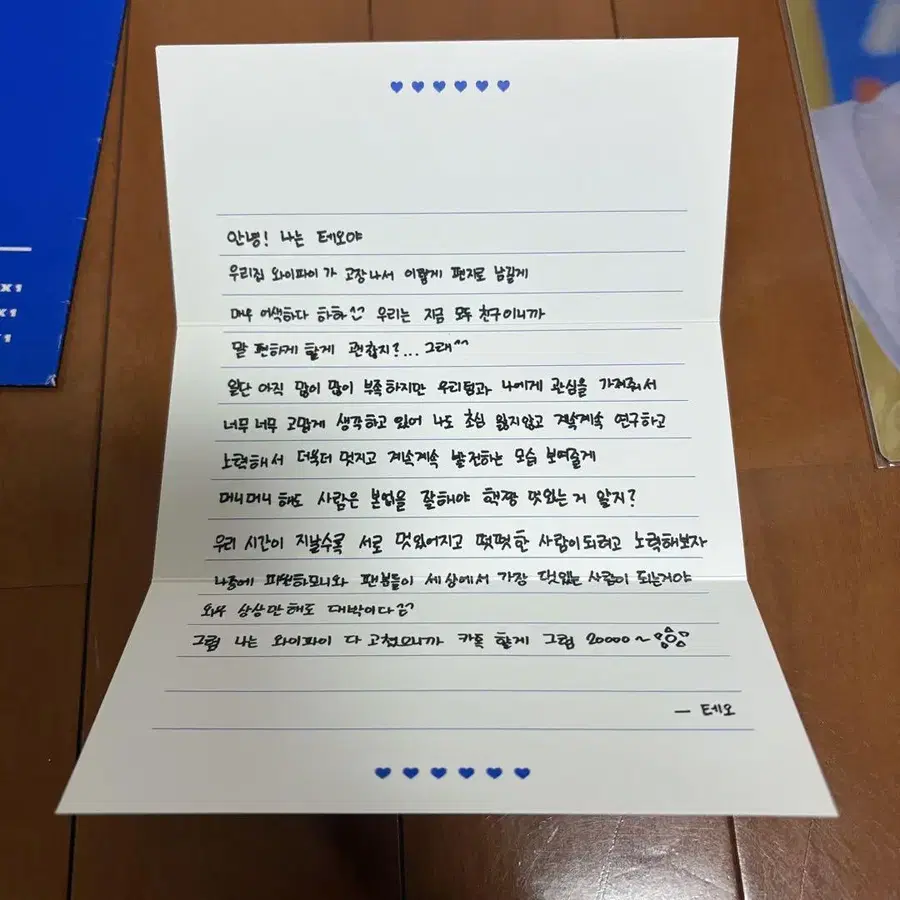 X1
X1
1
안녕! 나는 테오야
우리집 와이파이가 고장나서 이렇게 편지로 남길게
매우 어색하다 하하^^ 우리는 지금 모두 친구이니까
말 편하게 할게 괜찮지?... 그래^^
일단 아직 많이 많이 부족하지만 우리팀과 나에게 관심을 가져줘서
너무 너무 고맙게 생각하고 있어 나도 초심 잃지않고 계속계속 연구하고
노력해서 더욱더 멋지고 계속계속 발전하는 모습 보여줄게
머니머니 해도 사람은 본업을 잘해야 핵짱 멋있는 거 알지?
우리 시간이 지날수록 서로 멋있어지고 떳떳한 사람이되려고 노력해보자
나중에 피원하모니와 팬분들이 세상에서 가장 멋있는 사람이 되는거야
와우 상상만해도 대박이다
그럼 나는 와이파이 다 고쳤으니까 카톡 할게 그럼 20000~
— 테오